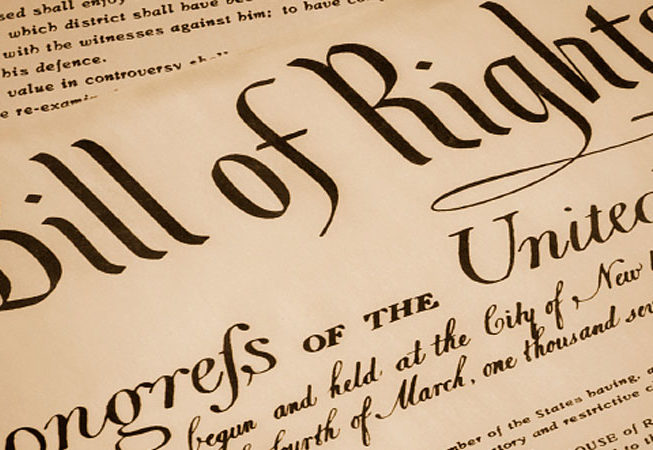 sed shall enjoy
which district shall have be
with the witnesses against him; to have com
his defence.
value in controversy shall
re-exami
Bill of Rights
Congreſs OF THE United
begun and held at the City of New
fourth of March, one thousand sev
mber of the States having, a
tory and restrictive c
OUSE of R
to the